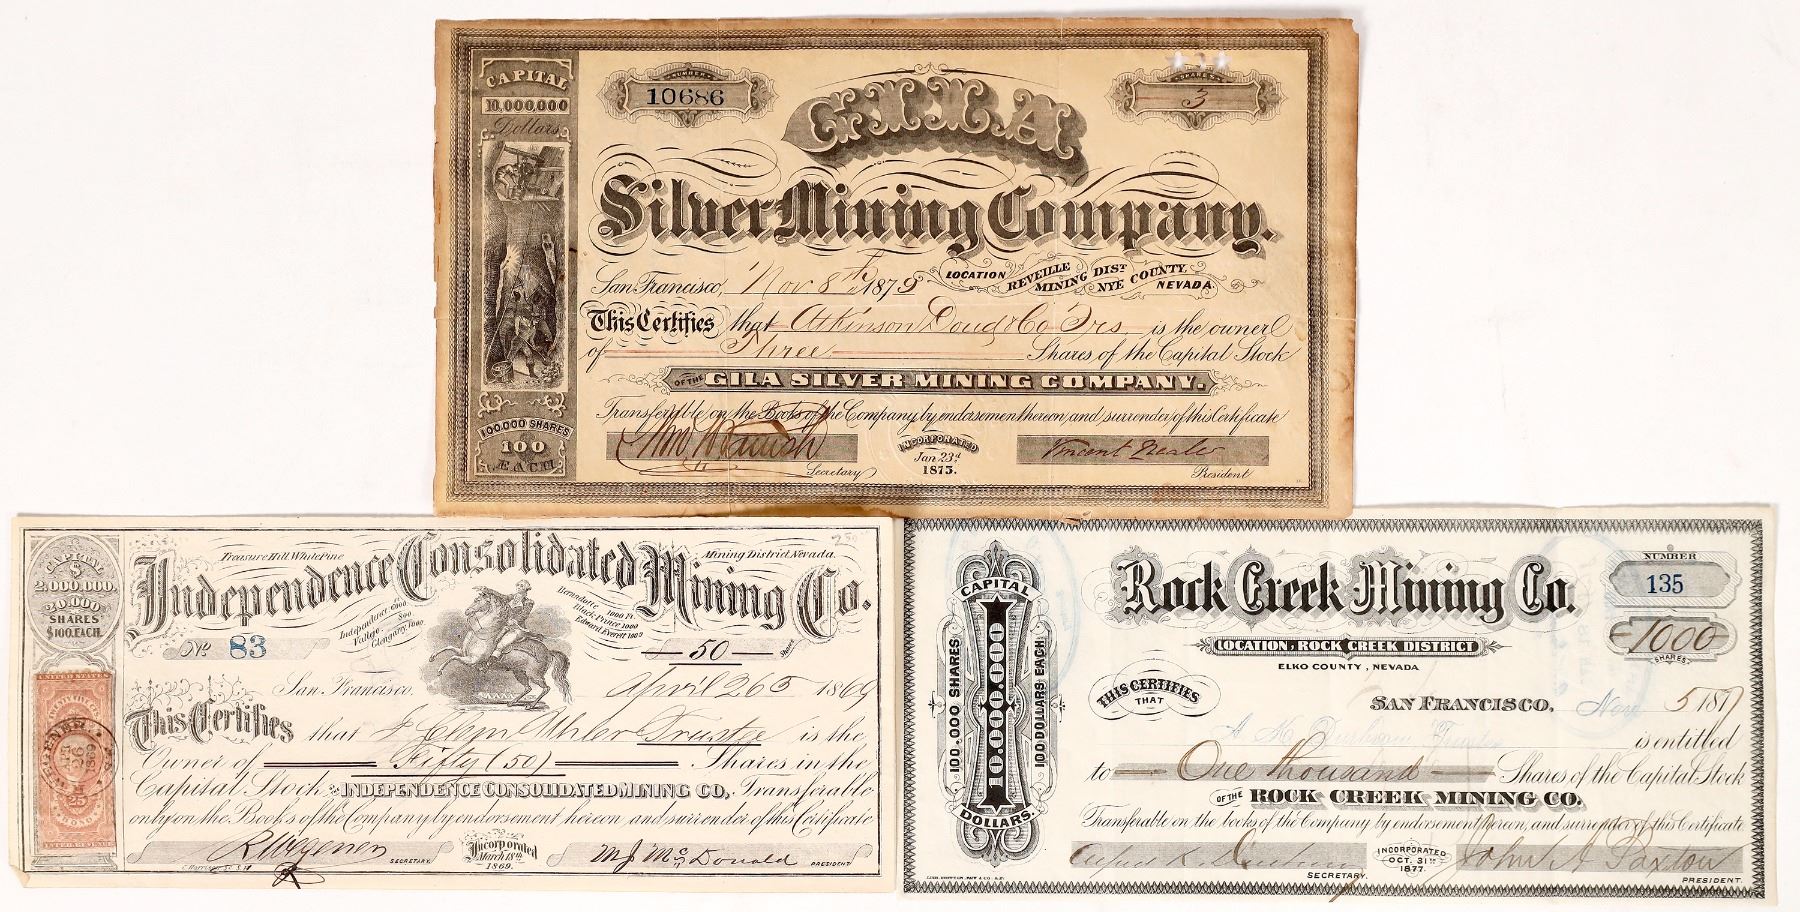 CAPITAL
10,000,000
Dollars
NUMBER
10686
SHARES
3
GILA
Silver Mining Company.
San Francisco, Nov 8th 1879
LOCATION REVEILLE MINING DIST. NYE COUNTY, NEVADA.
This Certifies that Atkinson Doud & Co Trs. is the owner
of Three Shares of the Capital Stock
OF THE GILA SILVER MINING COMPANY.
Transferable on the Books of the Company by endorsement hereon, and surrender of this Certificate
100,000 SHARES
100
EACH
INCORPORATED
Jan. 23d
1875.
Secretary
President
CAPITAL
$
2,000,000.
20,000
SHARES
$100. EACH.
Treasure Hill, White Pine Mining District, Nevada.
Independence Consolidated Mining Co.
Independent 1000.
Vallejo. 800
Glengary, 1000.
Bernadotte 1000 Ft.
Black Prince 1000
Edward Everett 1000
No. 83
50 Shares
San Francisco, April 26th 1869
This Certifies that J Clem Uhler Trustee is the
Owner of Fifty (50) Shares in the
Capital Stock of INDEPENDENCE CONSOLIDATED MINING CO. Transferable
only on the Books of the Company by endorsement hereon and surrender of this Certificate
UNITED STATES
25
INTER. REVENUE
1869
R. Wegener SECRETARY.
Incorporated
March 18th
1869.
M. J. McDonald PRESIDENT
CAPITAL
10,000,000
DOLLARS.
100,000 SHARES
100 DOLLARS EACH.
Rock Creek Mining Co.
NUMBER
135
1000
SHARES.
LOCATION, ROCK CREEK DISTRICT
ELKO COUNTY, NEVADA
THIS CERTIFIES
THAT
SAN FRANCISCO, Nov 5 1877
Trustee is entitled
to One thousand Shares of the Capital Stock
OF THE ROCK CREEK MINING CO.
Transferable on the books of the Company by endorsement hereon, and surrender of this Certificate
SECRETARY.
INCORPORATED
OCT. 31st
1877.
John A Paxton
PRESIDENT.